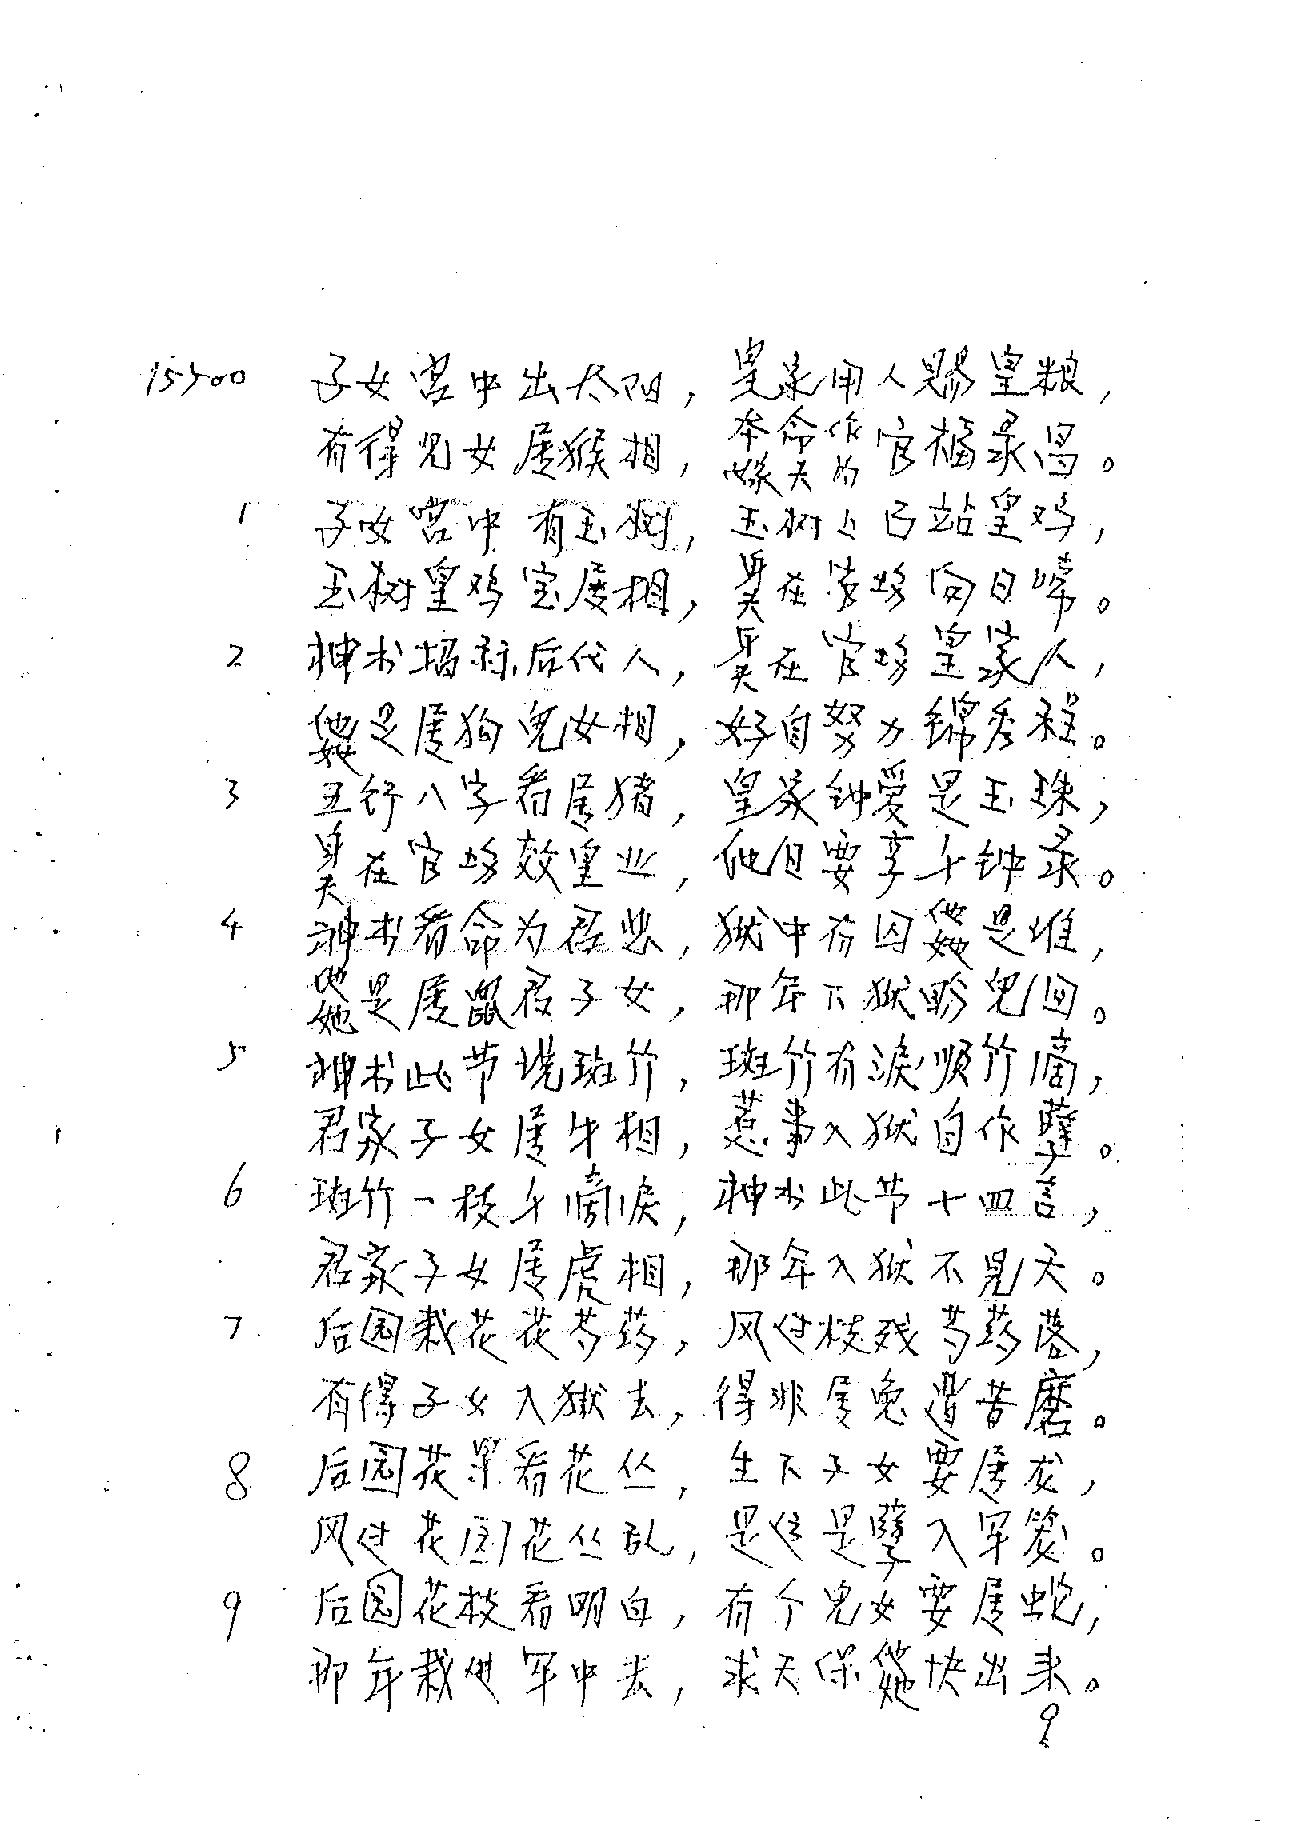 15500 子女宫中出太阳，皇家用人赐皇粮，
有得儿女属猴相，本命作嫁夫为官福录昌。
1 子女宫中有玉树，玉树上已站皇鸡，
玉树皇鸡宝属相，身夫在官场向日啼。
2 神书招示后代人，身夫在官场皇家人，
他她是属狗儿女相，好自努力锦秀程。
3 五行八字看属猪，皇家钟爱是玉珠，
身夫在官场效皇业，他但要享千钟录。
4 神书看命为君悲，狱中有囚他她是谁，
他她是属鼠君子女，那年下狱盼儿回。
5 神书此节说斑竹，斑竹有泪顺竹滴，
君家子女属牛相，惹事入狱自作孽。
6 斑竹一枝千滴泪，神书此节十四言，
君家子女属虎相，那年入狱不见天。
7 后园栽花花芍药，风过枝残芍药落，
有得子女入狱去，得非属兔遭苦磨。
8 后园花果看花丛，生下子女要属龙，
风过花园花丛乱，是凶是孽入牢笼。
9 后园花枝看明白，有个儿女要属蛇，
那年栽进牢中去，求天保他她快出来。
9